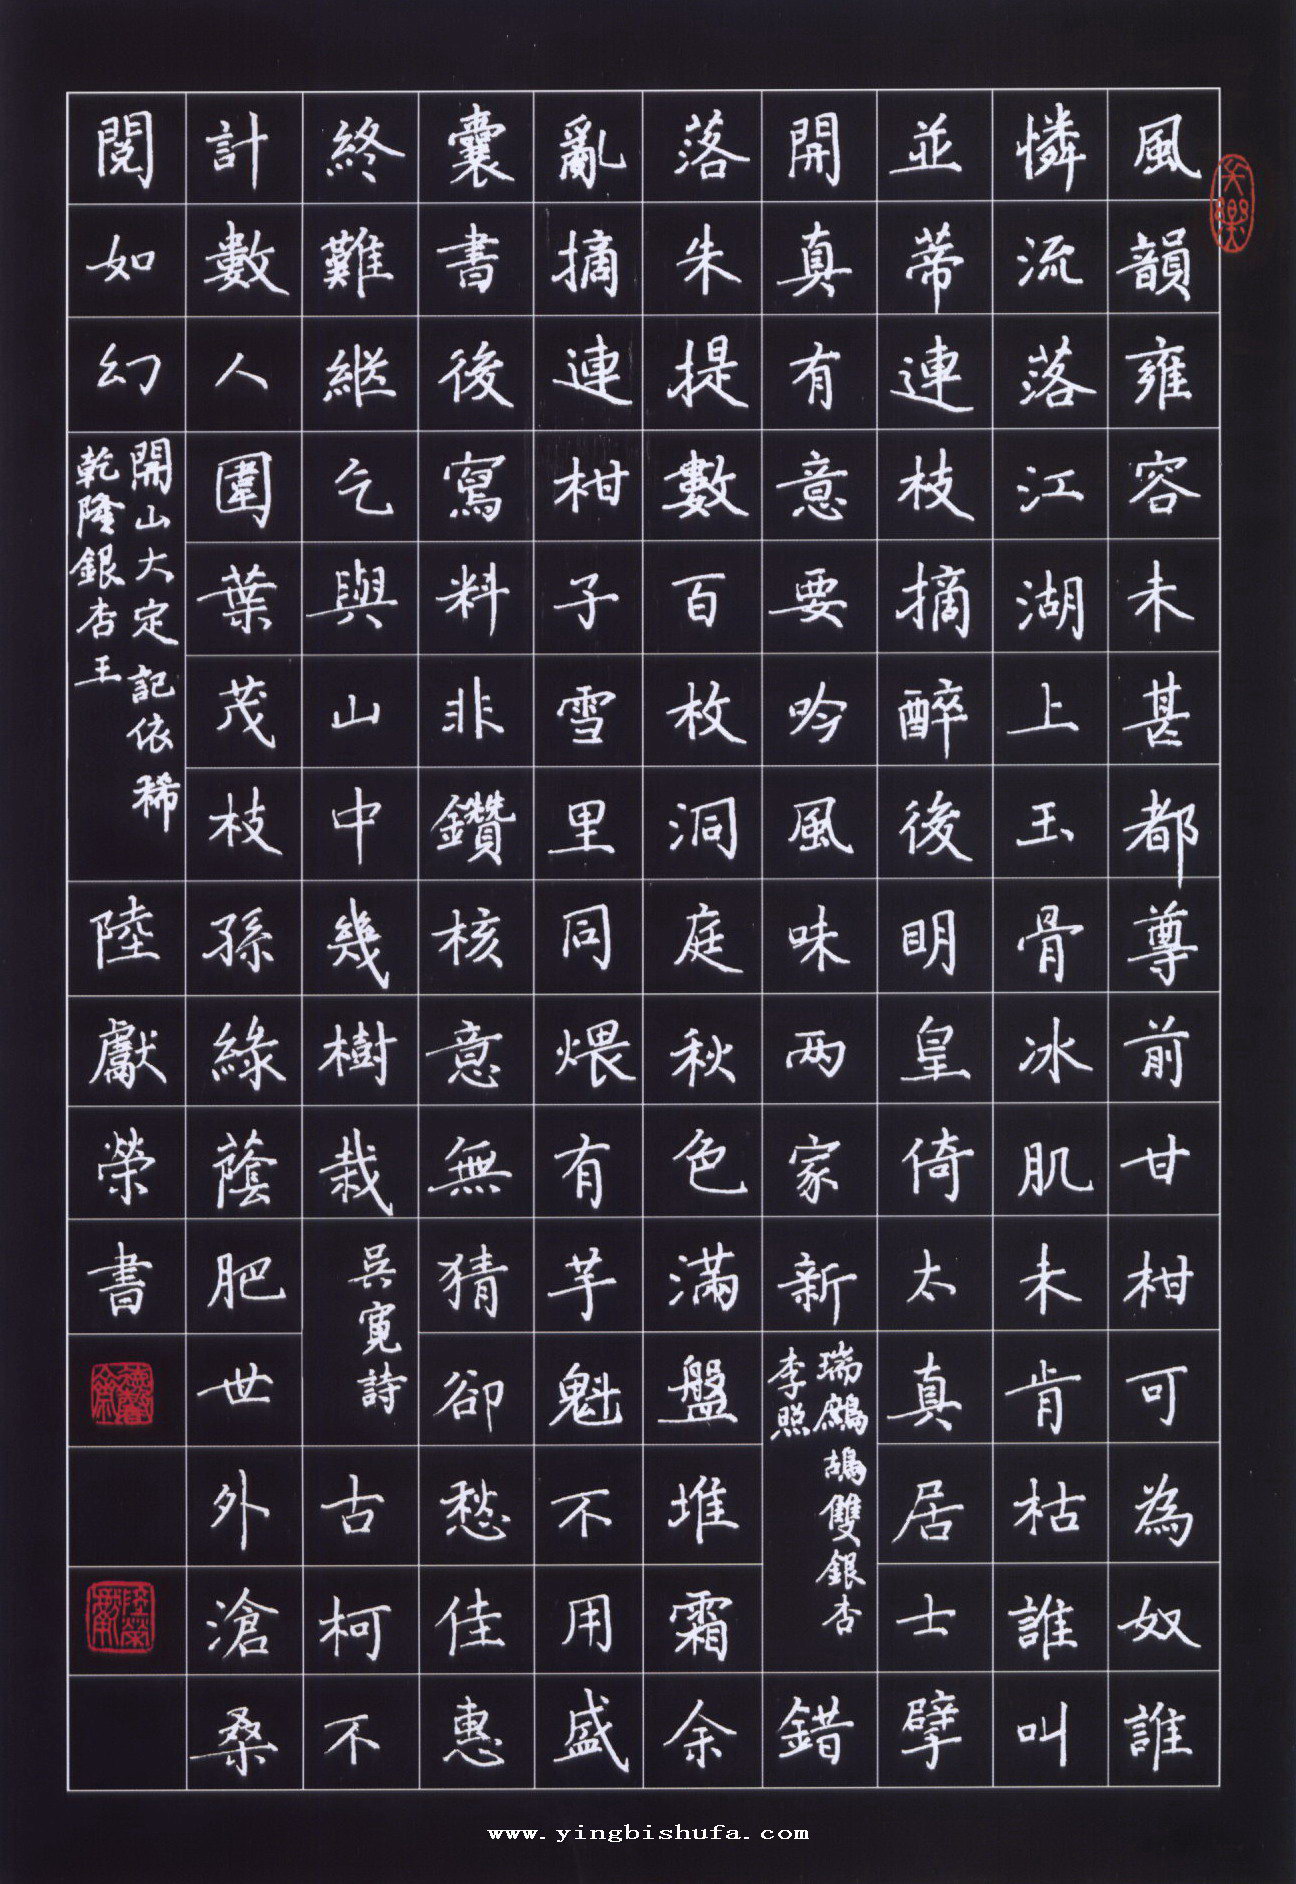 風韻雍容未甚都尊前甘柑可為奴誰
憐流落江湖上玉骨冰肌未肯枯誰叫
並蒂連枝摘醉後明皇倚太真居士擘
開真有意要吟風味两家新
瑞鷓鴣雙銀杏
李照
錯
落朱提數百枚洞庭秋色滿盤堆霜余
亂摘連柑子雪里同煨有芋魁不用盛
囊書後寫料非鑽核意無猜卻愁佳惠
終難継乞與山中幾樹栽
吳寬詩
古柯不
計數人圍葉茂枝孫綠蔭肥世外滄桑
閱如幻
開山大定記依稀
乾隆銀杏王
陸獻榮書
www.yingbishufa.com